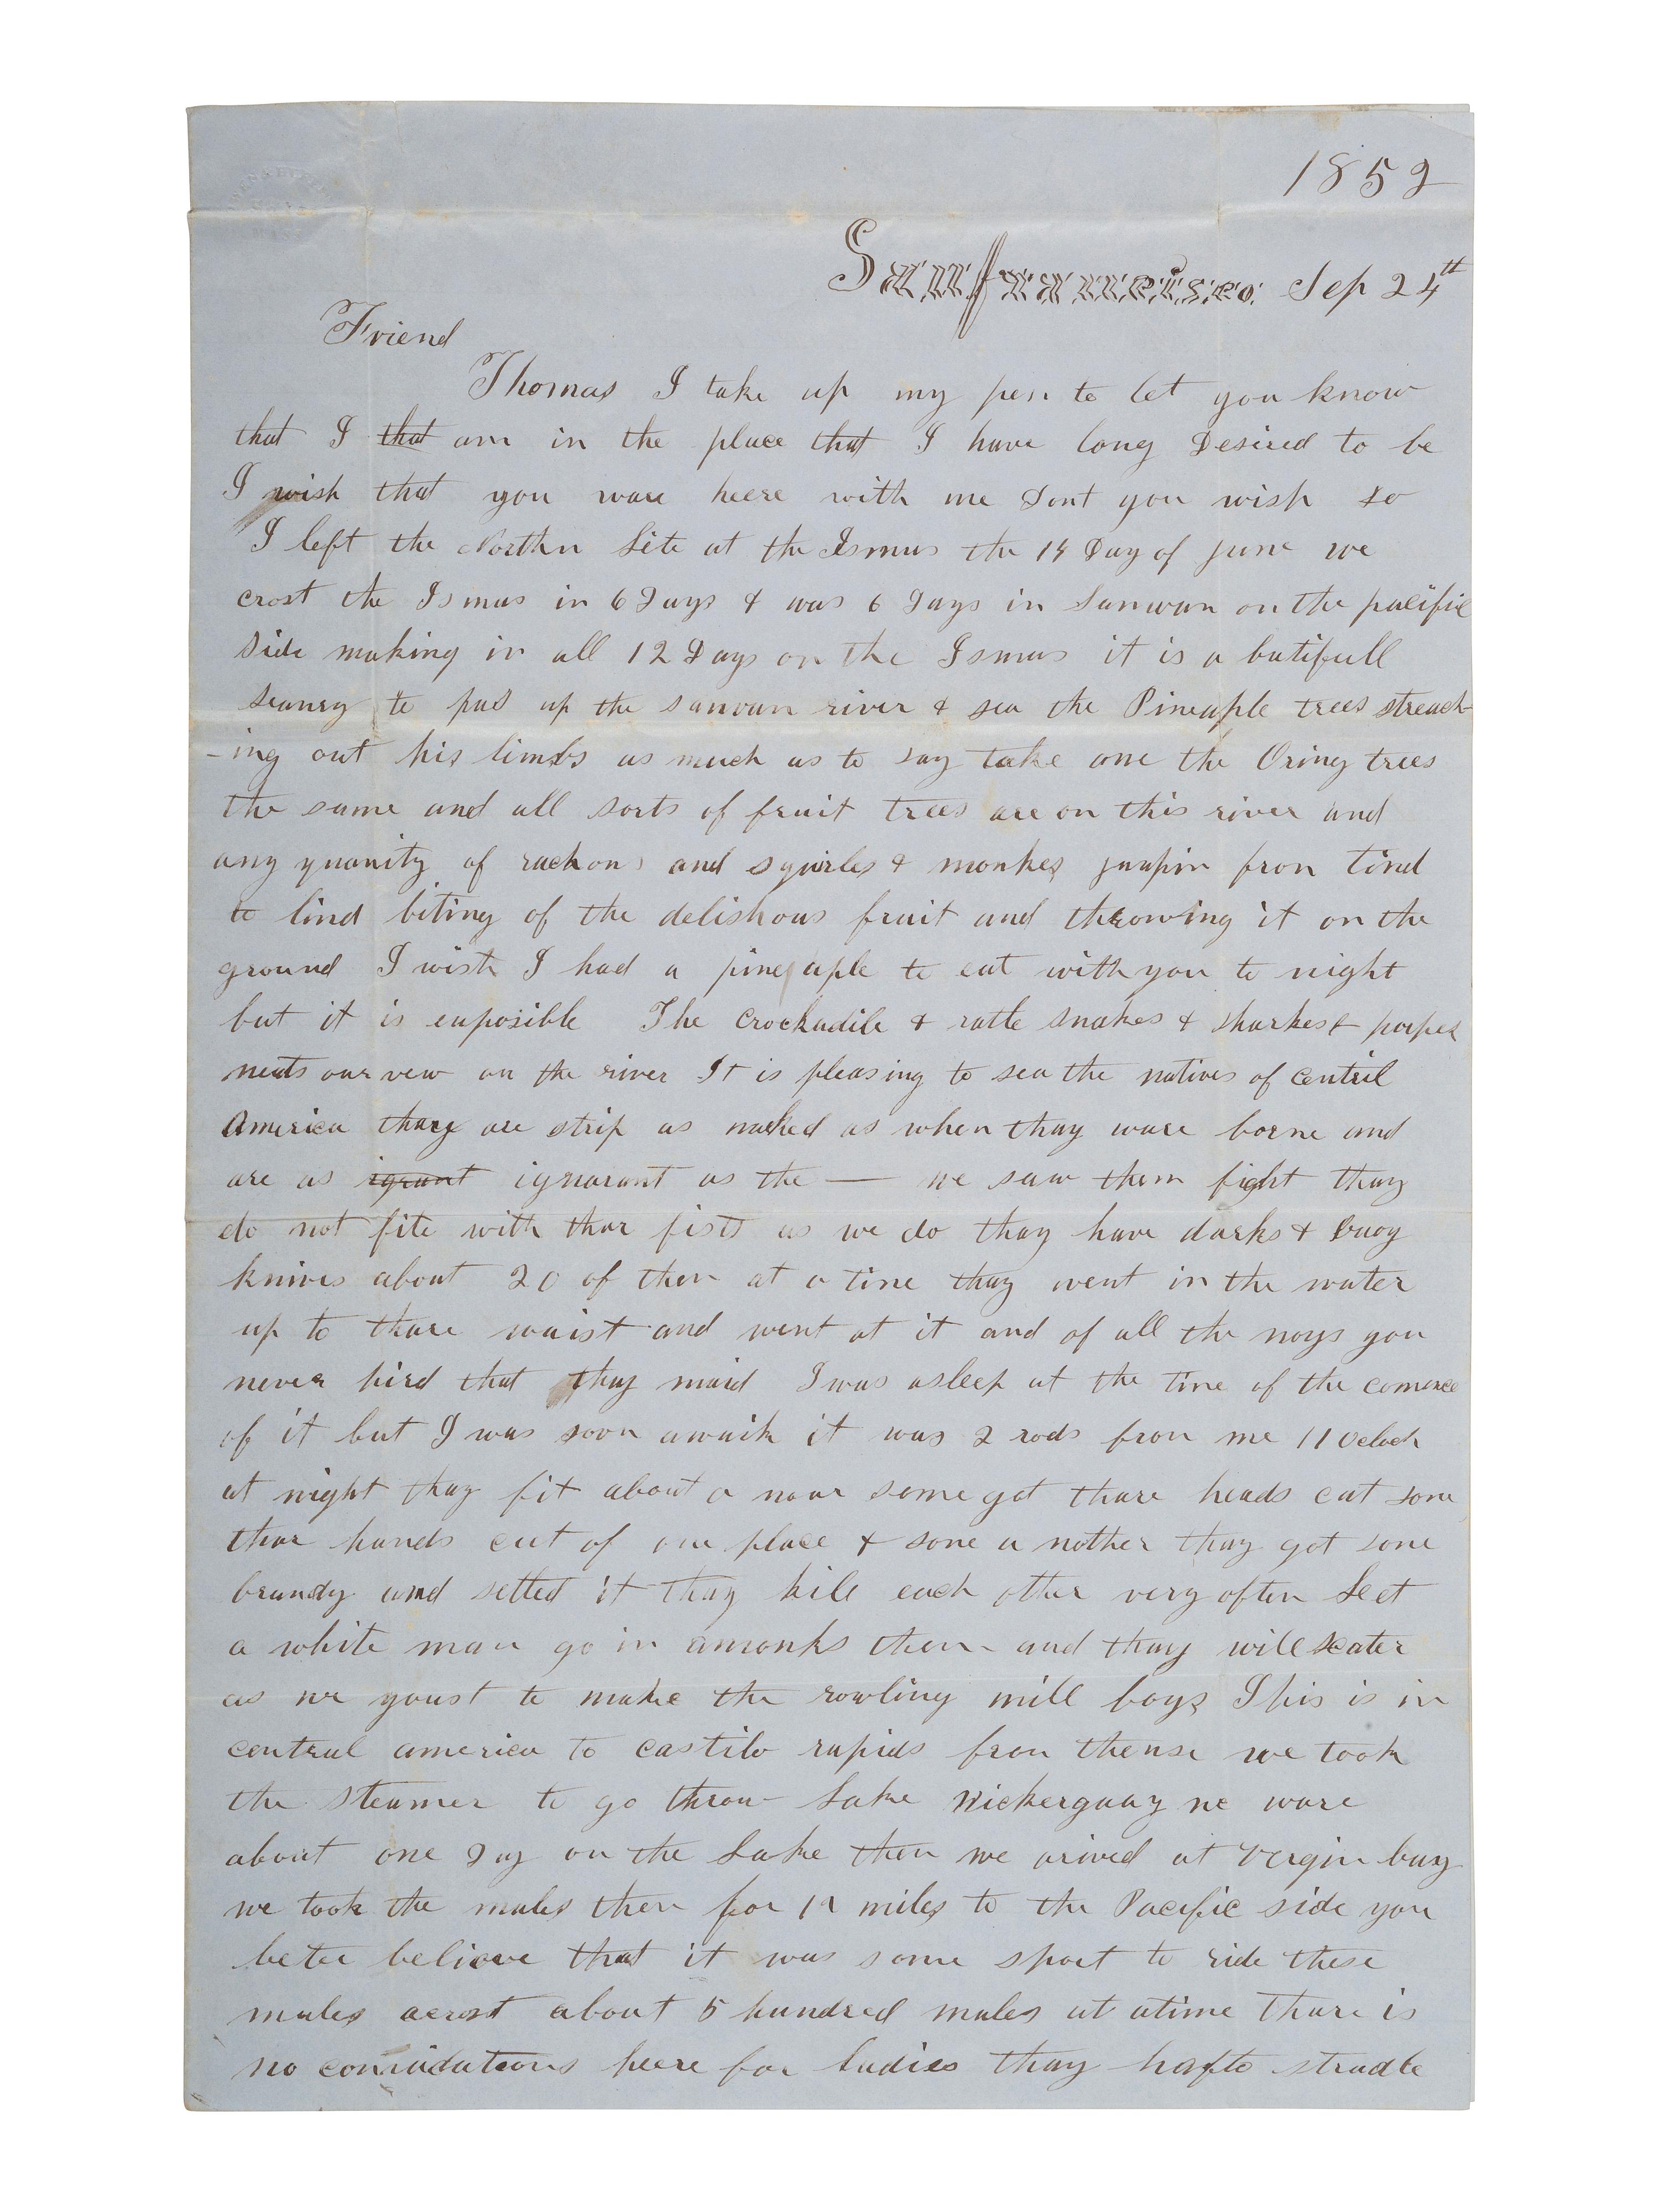 1852
Sanfrancisco. Sep 24th
Friend
Thomas I take up my pen to let you know
that I that am in the place that I have long Desired to be
I wish that you ware heere with me Dont you wish so
I left the Northn Site at the Ismus the 14 Day of june we
crost the Ismus in 6 Days & was 6 Days in Sanwan on the pacific
side making in all 12 Days on the Ismus it is a butifull
seanry to pas up the sanvan river & sea the Pineaple trees streach
-ing out his limbs as much as to say take one the Oring trees
the same and all sorts of fruit trees are on this river and
any quanity of rackons and squirles & monkes jumpin from limd
to limd biting of the delishous fruit and throwing it on the
ground I wish I had a pineaple to eat with you to night
but it is enposible The Crockadile & ratle snakes & sharkes &
meats our vew on the river It is pleasing to sea the natives of Centril
America thay are strip as nacked as when thay ware borne and
are as igrant ignarant as the — we saw them fight thay
do not fite with thar fists as we do thay have darks & Buoy
knives about 20 of them at a time thay went in the water
up to thare waist and went at it and of all the noys you
never hird that thay maid I was asleep at the time of the comence
of it but I was soon awaik it was 2 rods from me 11 Oclock
at night thay fit about a nour some got thare heads cut some
thar hands cut of one place & some a nother thay got some
brandy and setled it thay kile each other very often Let
a white man go in amonks them and thay will scater
as we youst to make the rowling mill boys This is in
centrul america to castilo rapids from thense we took
the steamer to go throu Lake Nickerguay we ware
about one Day on the Lake then we arived at Vergin bay
we took the mules then for 12 miles to the Pacific side you
beter believe that it was some sport to ride these
mules acrost about 5 hundred mules at atime thare is
no comidations heere for Ladies thay hafto stradle